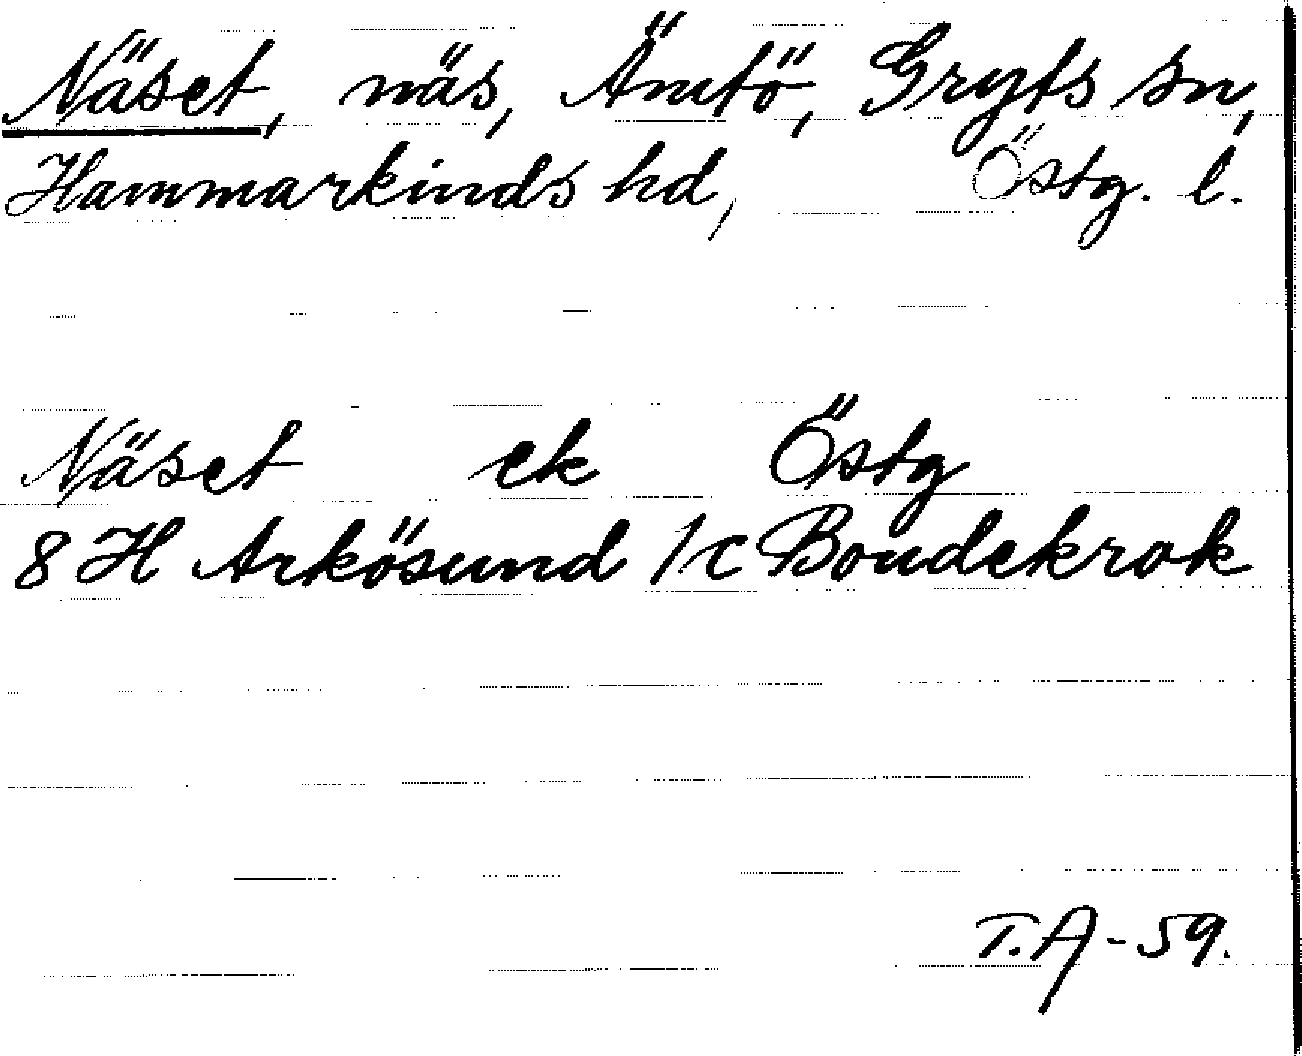 Näset, näs, Ämtö, Gryts sn,
Hammarkinds hd, Östg. l.
Näset ek Östg
8 H Arkösund 1/c Bondekrok
T.A-59.